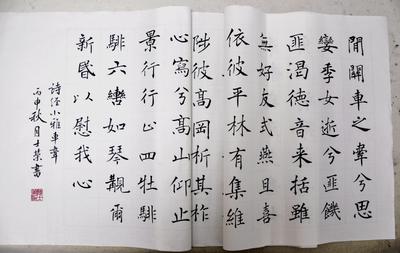 間關車之舝兮思
孌季女逝兮匪饑
匪渴德音來括雖
無好友式燕且喜
依彼平林有集維
陟彼高岡析其柞
心寫兮高山仰止
景行行止四牡騑
騑六轡如琴覯爾
新昏以慰我心
詩經小雅車舝
丙申秋月士榮書